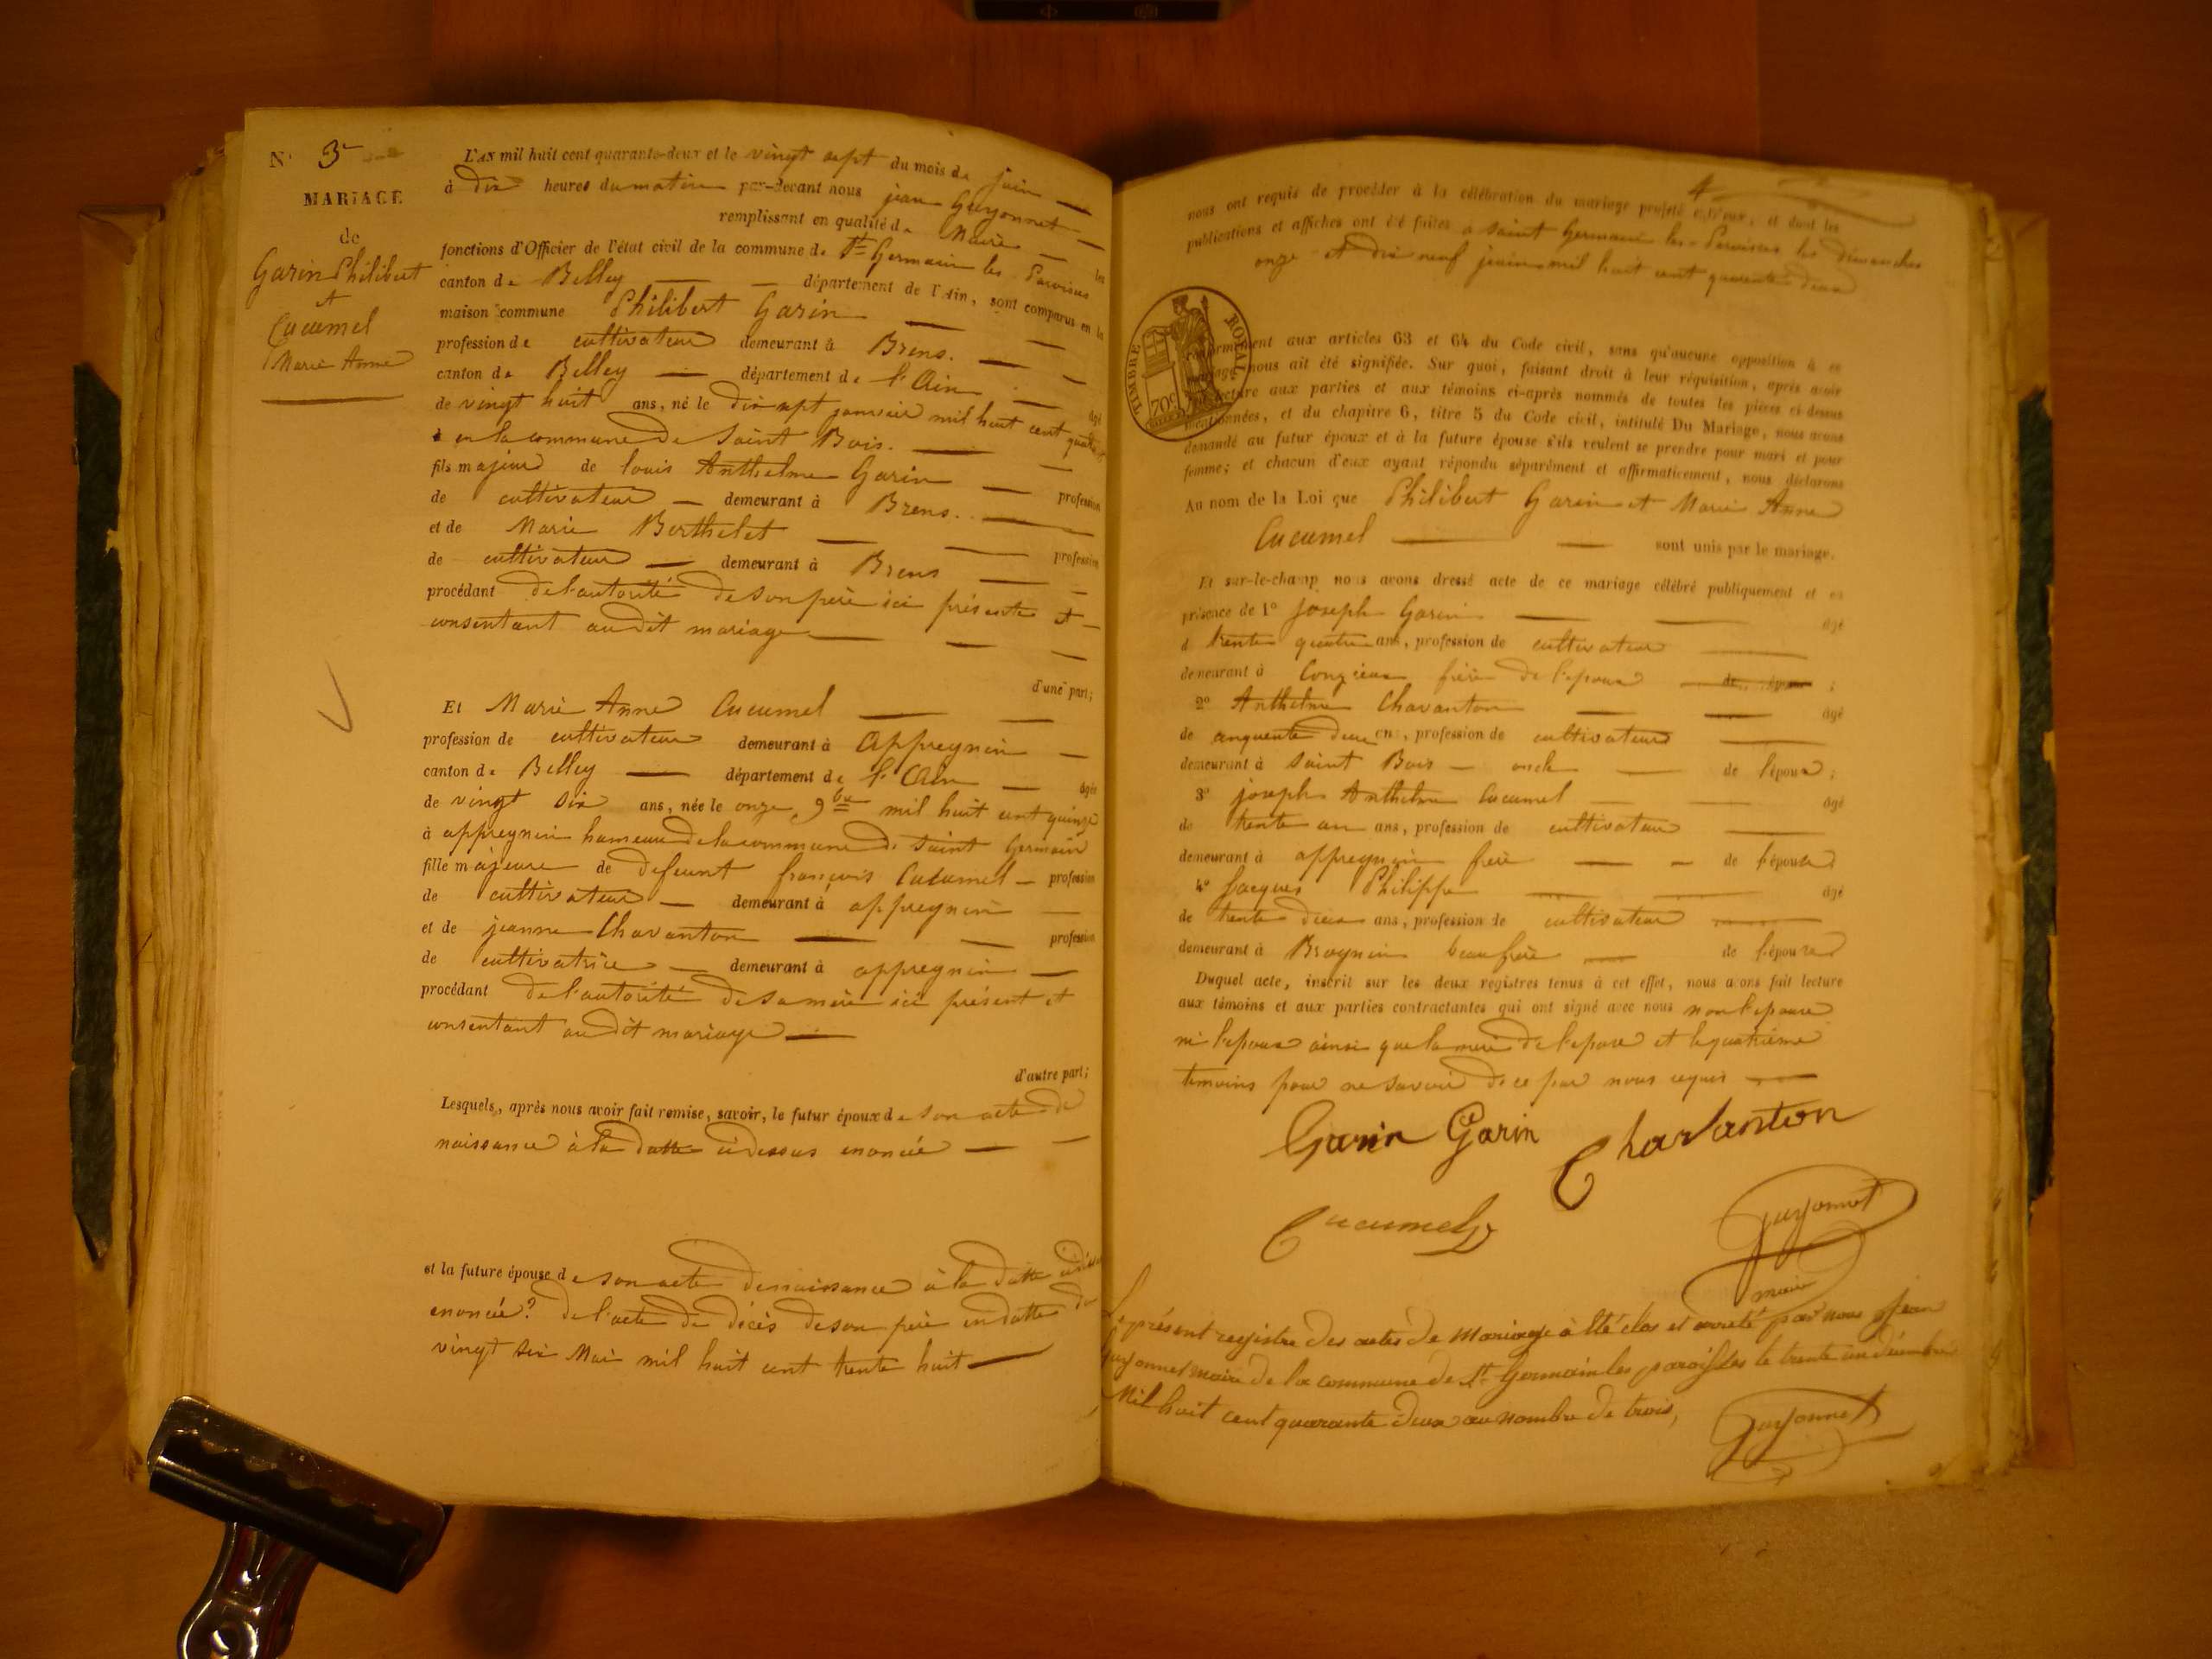 N° 3
MARIAGE
de
Garin Philibert
et
Cucumel
Marie Anne
L'an mil huit cent quarante-deux et le vingt sept du mois de juin
à dix heures du matin par-devant nous jean Guyonnet
remplissant en qualité de Maire les
fonctions d'Officier de l'état civil de la commune de St Germain les Paroisses
canton de Belley département de l'Ain, sont comparus en la
maison commune Philibert Garin
profession de cultivateur demeurant à Brens.
canton de Belley département de l'Ain âgé
de vingt huit ans, né le dix sept janvier mil huit cent quatorze
en la commune de Saint Bois.
fils majeur de louis Anthelme Garin profession
de cultivateur demeurant à Brens.
et de Marie Berthelet profession
de cultivateur demeurant à Brens
procédant de l'autorité de son père ici présente et
consentant au dit mariage
d'une part;
Et Marie Anne Cucumel
profession de cultivateur demeurant à Appregnin
canton de Belley département de l'Ain âgée
de vingt six ans, née le onze 9bre mil huit cent quinze
à appregnin hameau de la commune de Saint Germain
fille majeure de defeunt françois Cucumel profession
de cultivateur demeurant à appregnin
et de jeanne Chavanton profession
de cultivatrice demeurant à appregnin
procédant de l'autorité de sa mère ici présent et
consentant au dit mariage
d'autre part;
Lesquels, après nous avoir fait remise, savoir, le futur époux de son acte de
naissance à la datte cidessus enoncée
et la future épouse de son acte de naissance à la datte cidessus
enoncée? de l'acte de décès de son père en datte du
vingt six Mai mil huit cent trente huit
4
nous ont requis de procéder à la célébration du mariage projeté entr'eux, et dont les
publications et affiches ont été faites a saint Germain les Paroisses les dimanches
onze et dix neuf juin mil huit cent quarente deux
TIMBRE ROYAL
70c
conformément aux articles 63 et 64 du Code civil, sans qu'aucune opposition à ce
mariage nous ait été signifiée. Sur quoi, faisant droit à leur réquisition, après avoir
lecture aux parties et aux témoins ci-après nommés de toutes les pièces ci-dessus
mentionnées, et du chapitre 6, titre 5 du Code civil, intitulé Du Mariage, nous avons
demandé au futur époux et à la future épouse s'ils veulent se prendre pour mari et pour
femme; et chacun d'eux ayant répondu séparément et affirmativement, nous déclarons
Au nom de la Loi que Philibert Garin et Marie Anne
Cucumel sont unis par le mariage.
Et sur-le-champ nous avons dressé acte de ce mariage célébré publiquement et en
présence de 1° Joseph Garin âgé
d trente quatre ans, profession de cultivateur
demeurant à Conzieu frère de l'epoux ;
2° Anthelme Chavanton âgé
de cinquente deux ans, profession de cultivateur
demeurant à Saint Bois oncle de l'époux ;
3° joseph Anthelme Cucumel âgé
de trente un ans, profession de cultivateur
demeurant à appregnin frère de l'épouse
4° Jacques Philippe âgé
de trente deux ans, profession de cultivateur
demeurant à Brognin beau frère de l'épouse
Duquel acte, inscrit sur les deux registres tenus à cet effet, nous avons fait lecture
aux témoins et aux parties contractantes qui ont signé avec nous non l'epouse
ni l'epoux ainsi que la mère de l'epouse et le quatrième
temoins pour ne savoir de ce par nous requis
Garin Garin Chavanton
Cucumel Guyonnet
maire
Le présent registre des actes de Mariage à été clos et arreté par nous Jean
Guyonnet maire de la commune de St Germain les paroisses le trente un décembre
Mil huit cent quarante deux au nombre de trois,
Guyonnet